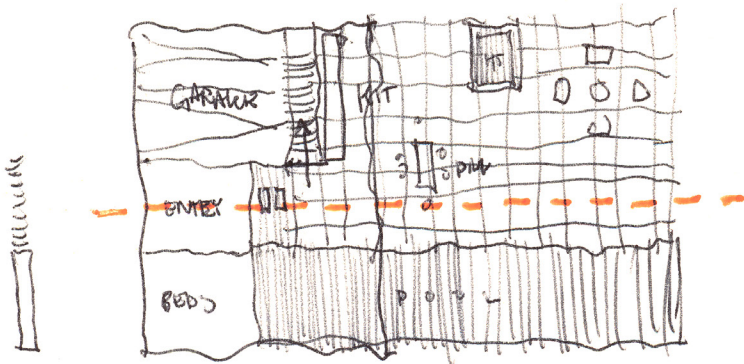 GARAGE
KIT
DIN
ENTRY
BEDS
POOL